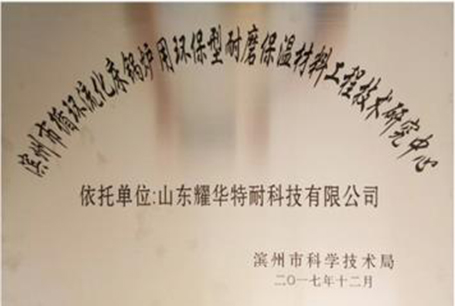 滨州市循环流化床锅炉用环保型耐磨保温材料工程技术研究中心
依托单位:山东耀华特耐科技有限公司
滨州市科学技术局
二〇一七年十二月